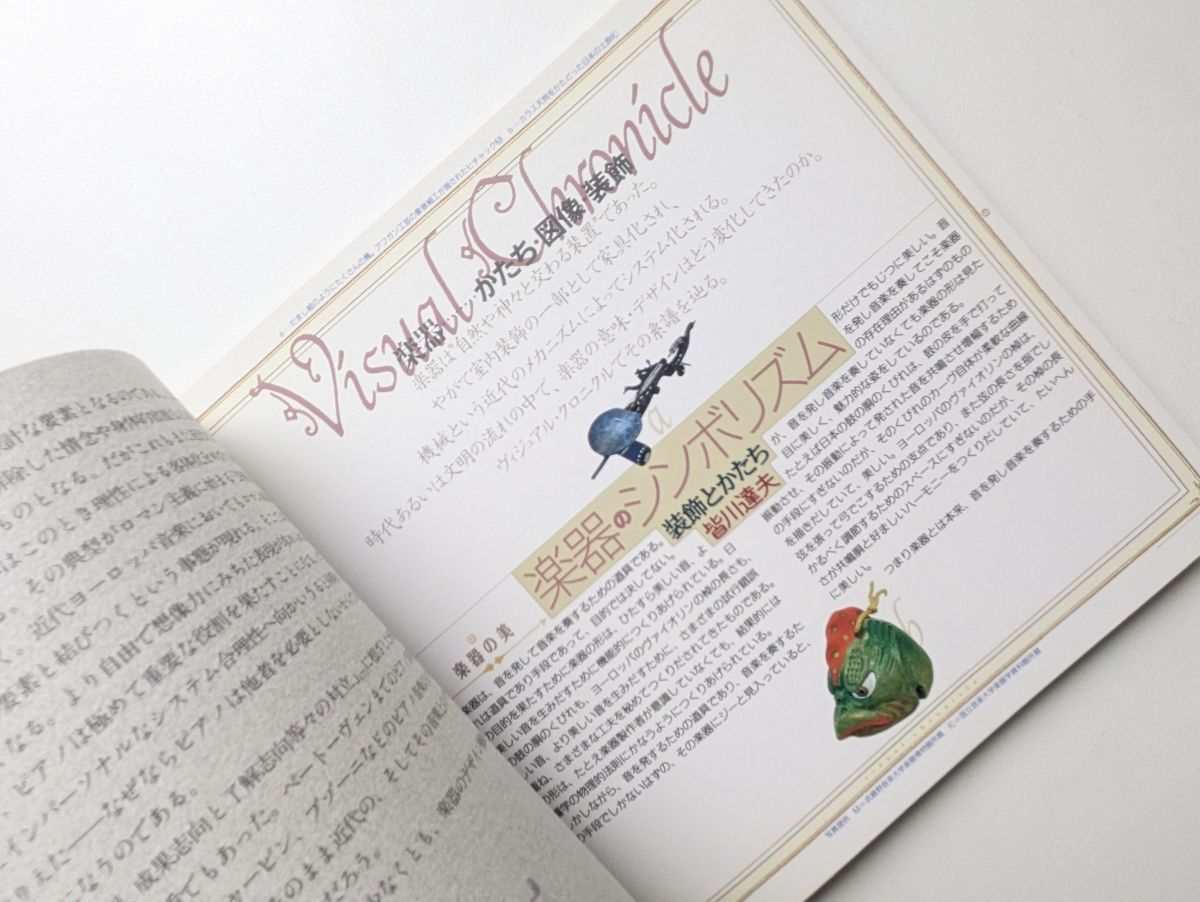 a—だまし絵のようにたくさんの鳥。アフガン工芸の象嵌細工が施されたヒチャック(M) b—カラス天狗をかたどった日本の土鈴(K)
Visual Chronicle
楽器—かたち・図像・装飾
楽器は“自然や神々と交わる装置”であった。
やがて室内装飾の一部として家具化され、
機械という近代のメカニズムによってシステム化される。
時代あるいは文明の流れの中で、楽器の意味・デザインはどう変化してきたのか。
ヴィジュアル・クロニクルでその系譜を辿る。
a
楽器のシンボリズム
装飾とかたち
皆川達夫
楽器の美
楽器は、音を発して音楽を奏するための道具である。
れは道具であり手段であって、目的では決してない。
の目的を果たすために楽器の形は、ひたすら美しい音、よ
美しい音を生みだすために機能的につくりあげられている。
の鼓の胴のくびれも、ヨーロッパのヴァイオリンの棹の長さも、
しい音、より美しい音を生みだすために、さまざまの試行錯誤
重ね、さまざまな工夫を秘めてつくりだされてきたものである。
の形は、たとえ楽器製作者が意識していなくても、結果的には
響学の物理的法則にかなうようにつくりあげられている。
しかしながら、音を発するための道具であり、音楽を奏するた
の手段でしかないはずの、その楽器にジーと見入っていると、
形だけでもじつに美しい。音
を発し音楽を奏してこそ楽器
の存在理由があるはずのもの
が、音を発し音楽を奏していなくても楽器の形は見た
目に美しく、魅力的な姿をしているのである。
たとえば日本の鼓の胴のくびれは、鼓の皮を手で打って
振動させ、その振動によって発された音を共鳴させ増幅するため
の手段にすぎないのだが、そのくびれのカーヴ自体が柔軟な曲線
を描きだしていて、美しい。ヨーロッパのヴァイオリンの棹は、
弦を張って弓でこするための支点であり、また弦の長さを指でし
かるべく調節するためのスペースにすぎないのだが、その棹の長
さが共鳴胴と好ましいハーモニーをつくりだしていて、たいへん
に美しい。
つまり楽器とは本来、音を発し音楽を奏するための手
b
visual chronicle
写真提供 M=武蔵野音楽大学楽器博物館所蔵 K=国立音楽大学楽器学資料館所蔵
ものとなる。だがこれもまた
はこのとき理性による
、その典型がロマン主義
。近代ヨーロッパ音楽において
要素と結びつくという事態が現れる。
なる。より自由で想像力にみちた表現
、ピアノは極めて重要な役割を果たすことに
インパーソナルなシステム—合理性へ向かいうる
りえた——なぜならピアノは他者を必要としない
になうのである。
成果志向と了解志向等々の対立
でもあった。ベートーヴェン
ョーピン、ブゾーニなどのピアノ
そのまま近代の、そしてその
だろう。
少なくとも、
楽器のデザイ